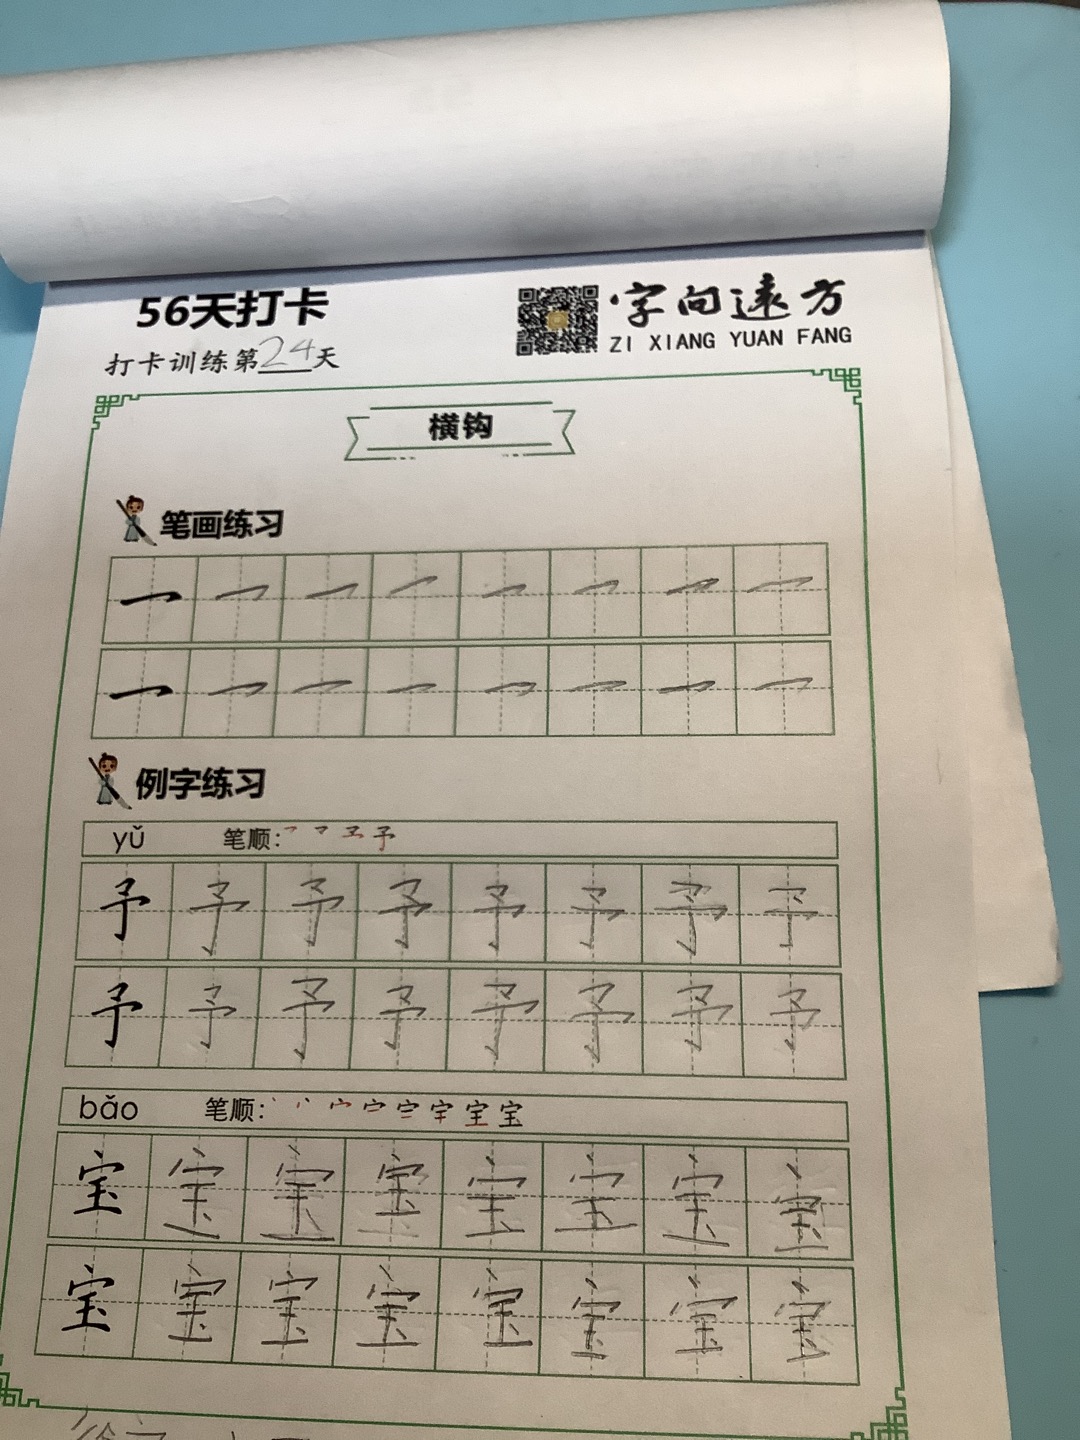 56天打卡
字向远方
ZI XIANG YUAN FANG
打卡训练第24天
横钩
笔画练习
一 一 一 一 一 一 一 一
一 一 一 一 一 一 一 一
例字练习
yǔ 笔顺: 予
予 予 予 予 予 予 予 予
予 予 予 予 予 予 予 予
bǎo 笔顺: 宝 宝
宝 宝 宝 宝 宝 宝 宝 宝
宝 宝 宝 宝 宝 宝 宝 宝